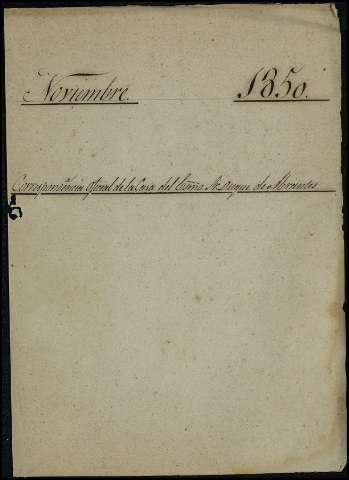 Noviembre. 1850.
Correspondencia oficial de la Casa del Exmo. Sr. Duque de Abrantes